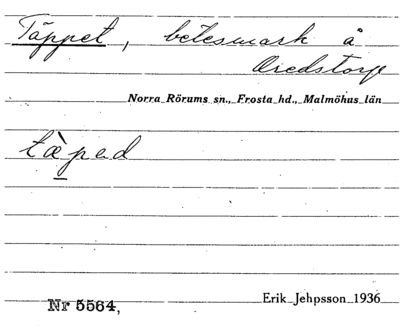 Täppet, betesmark å
Oredstorp
Norra Rörums sn., Frosta hd., Malmöhus län
tæ̀pad
Nr 5564,
Erik Jehpsson 1936